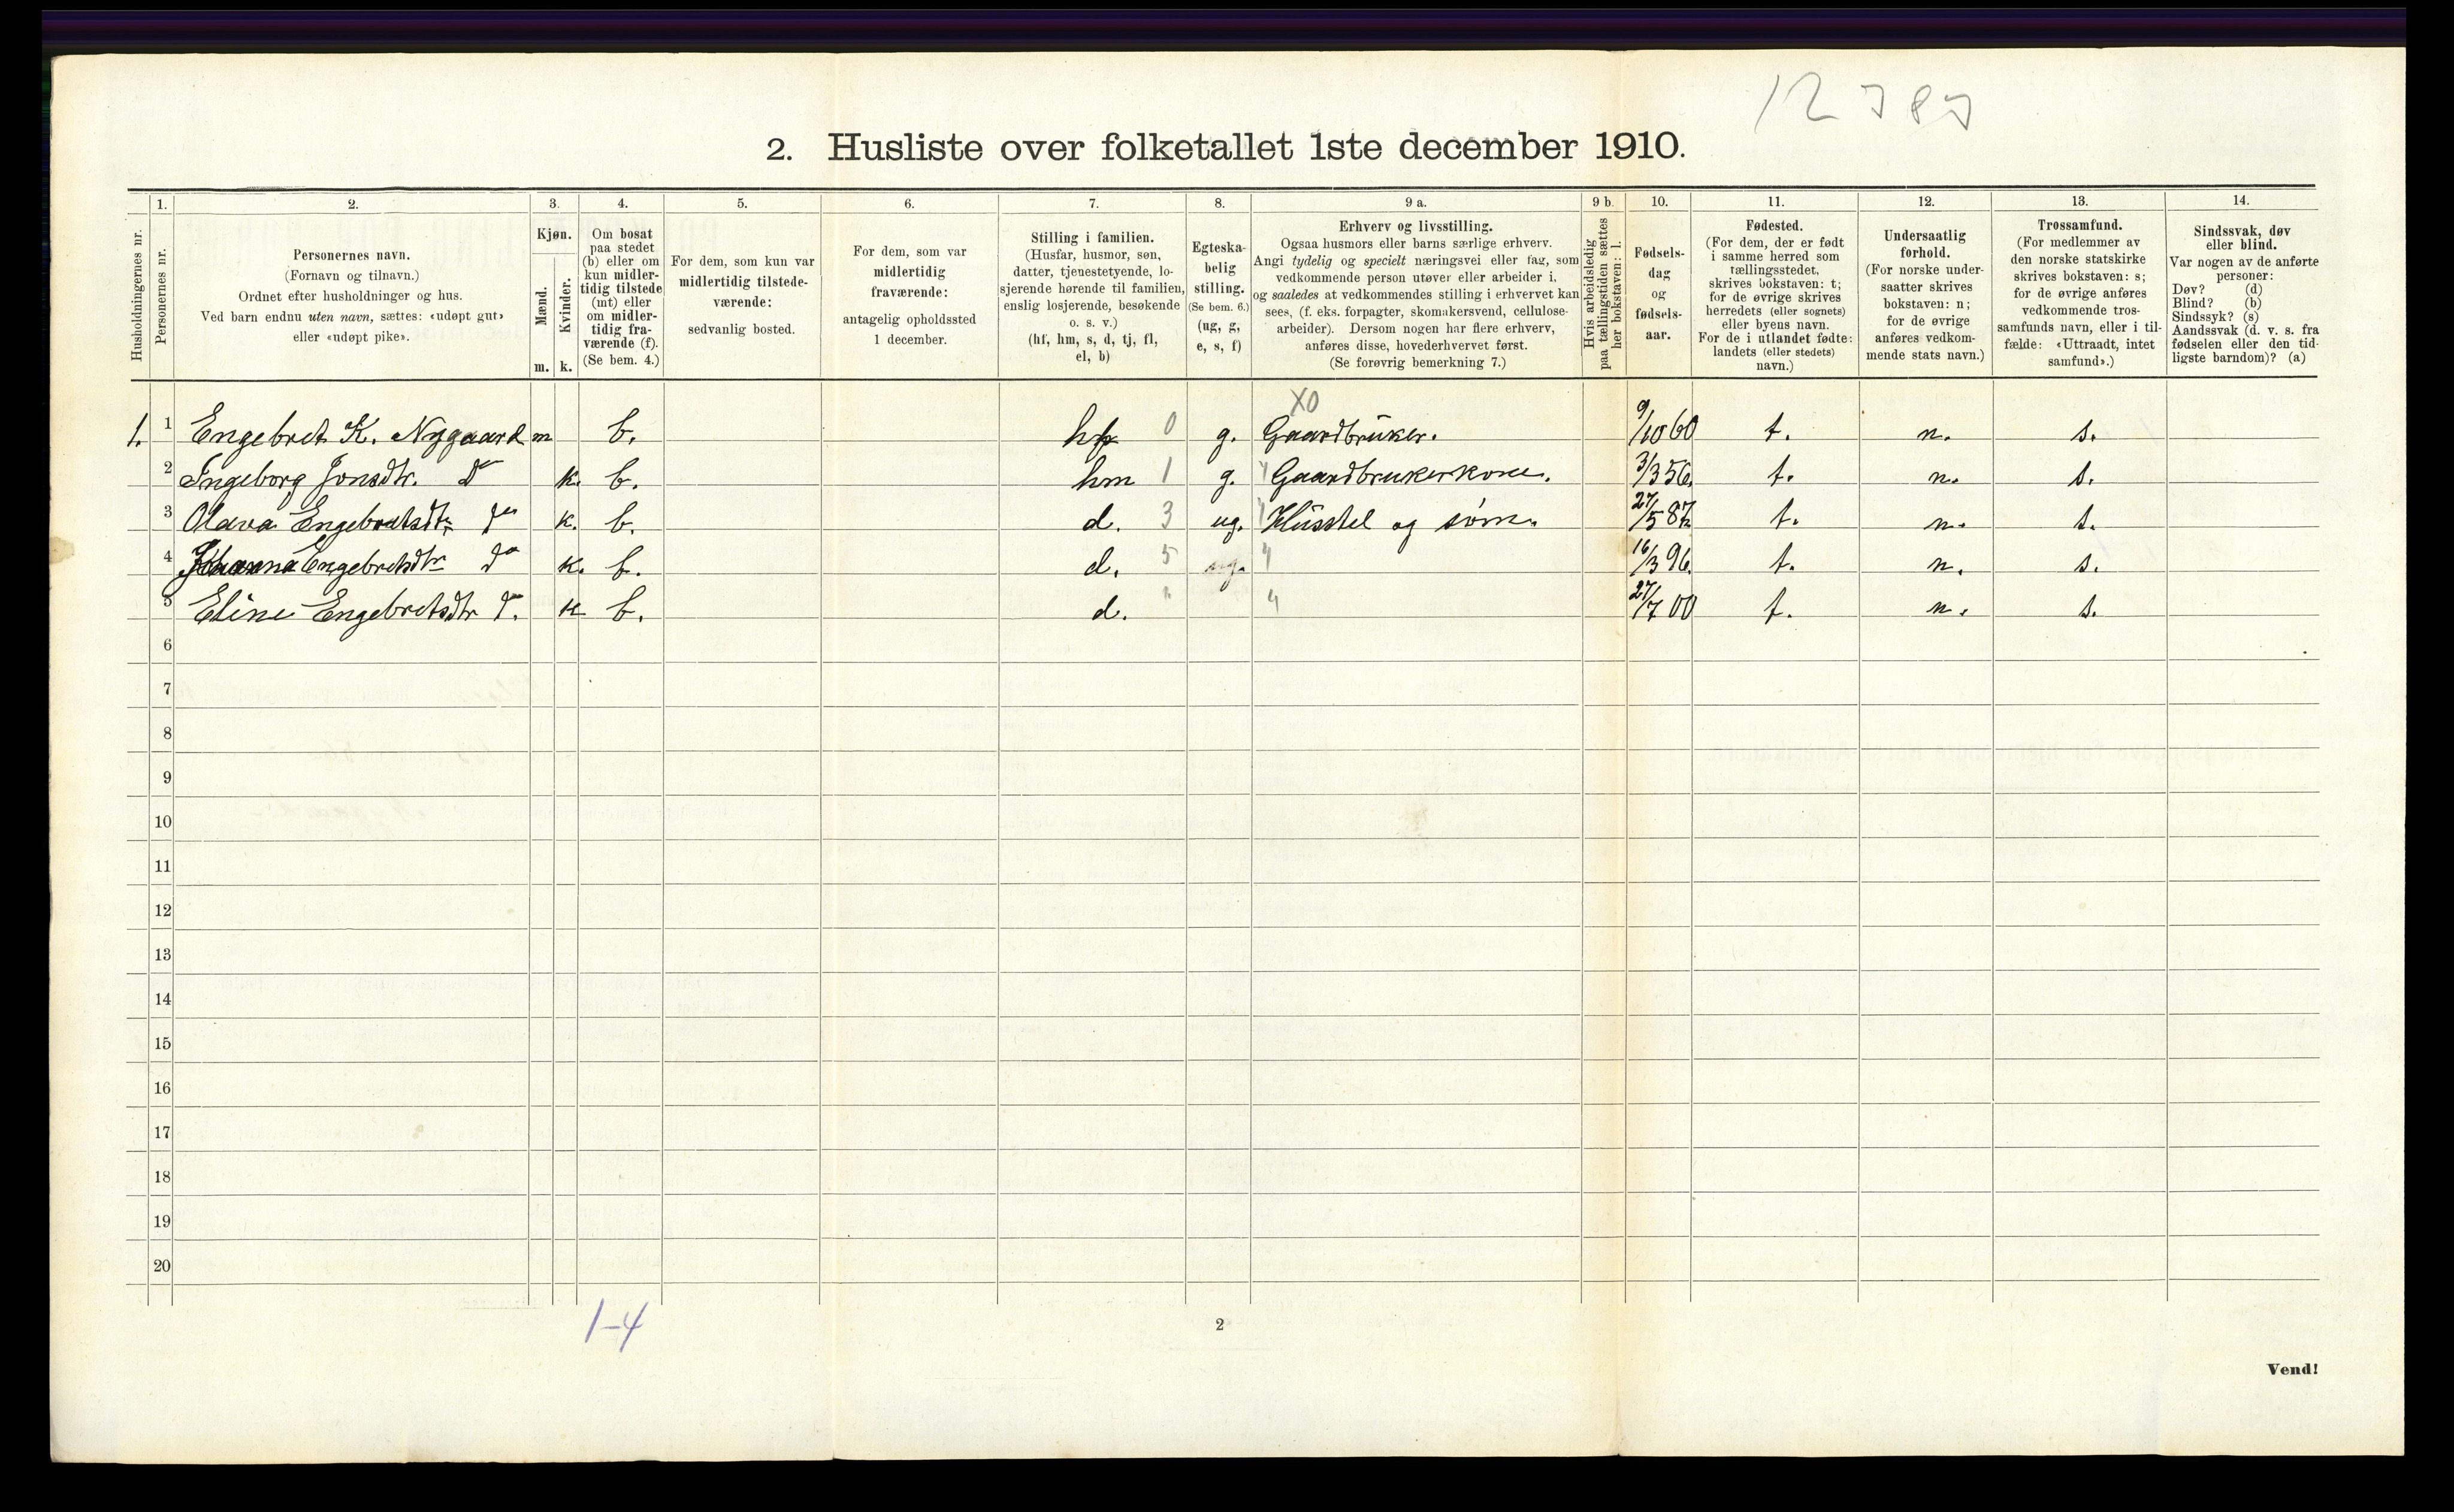 12787
2. Husliste over folketallet 1ste december 1910.
Husholdningernes nr.
1. Personernes nr.
2. Personernes navn.
(Fornavn og tilnavn.)
Ordnet efter husholdninger og hus.
Ved barn endnu uten navn, sættes: «udøpt gut»
eller «udøpt pike».
3. Kjøn.
Mænd. m.
Kvinder. k.
4. Om bosat
paa stedet
(b) eller om
kun midler-
tidig tilstede
(mt) eller
om midler-
tidig fra-
værende (f).
(Se bem. 4.)
5. For dem, som kun var
midlertidig tilstede-
værende:
sedvanlig bosted.
6. For dem, som var
midlertidig
fraværende:
antagelig opholdssted
1 december.
7. Stilling i familien.
(Husfar, husmor, søn,
datter, tjenestetyende, lo-
sjerende hørende til familien,
enslig losjerende, besøkende
o. s. v.)
(hf, hm, s, d, tj, fl,
el, b)
8. Egteska-
belig
stilling.
(Se bem. 6.)
(ug, g,
e, s, f)
9 a. Erhverv og livsstilling.
Ogsaa husmors eller barns særlige erhverv.
Angi tydelig og specielt næringsvei eller fag, som
vedkommende person utøver eller arbeider i,
og saaledes at vedkommendes stilling i erhvervet kan
sees, (f. eks. forpagter, skomakersvend, cellulose-
arbeider). Dersom nogen har flere erhverv,
anføres disse, hovederhvervet først.
(Se forøvrig bemerkning 7.)
9 b. Hvis arbeidsledig
paa tællingstiden sættes
her bokstaven: l.
10. Fødsels-
dag
og
fødsels-
aar.
11. Fødested.
(For dem, der er født
i samme herred som
tællingsstedet,
skrives bokstaven: t;
for de øvrige skrives
herredets (eller sognets)
eller byens navn.
For de i utlandet fødte:
landets (eller stedets)
navn.)
12. Undersaatlig
forhold.
(For norske under-
saatter skrives
bokstaven: n;
for de øvrige
anføres vedkom-
mende stats navn.)
13. Trossamfund.
(For medlemmer av
den norske statskirke
skrives bokstaven: s;
for de øvrige anføres
vedkommende tros-
samfunds navn, eller i til-
fælde: «Uttraadt, intet
samfund».)
14. Sindssvak, døv
eller blind.
Var nogen av de anførte
personer:
Døv? (d)
Blind? (b)
Sindssyk? (s)
Aandssvak (d. v. s. fra
fødselen eller den tid-
ligste barndom)? (a)
X0
1. 1 Engebret K. Nygaard m b. hf 0 g. Gaardbruker. 9/10 60 t. n. s.
2 Ingeborg Jonsdtr. do k. b. hm 1 g. Gaardbrukerkone. 3/3 56. t. n. s.
3 Olava Engebretsdtr. do k. b. d. 3 ug. Husstel og søm. 27/5 87. t. n. s.
4 Johanna Engebretsdtr do k. b. d. 5 ug. 16/3 96. t. n. s.
5 Eline Engebretsdtr d. k b. d. 27/7 00 t. n. s.
6
7
8
9
10
11
12
13
14
15
16
17
18
19
20
1-4
2
Vend!